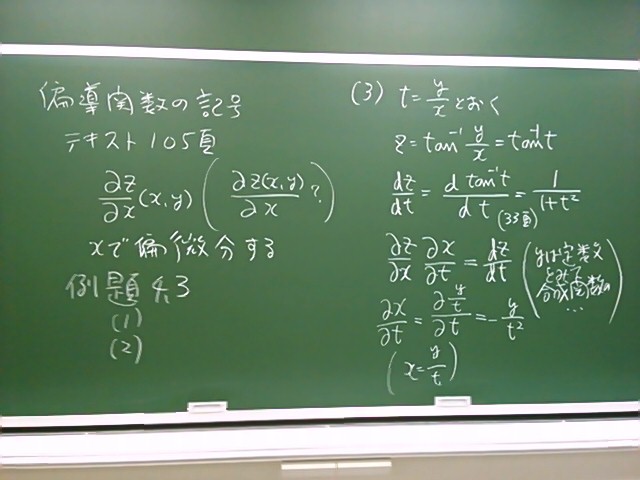 偏導関数の記号
テキスト105頁
∂z/∂x (x,y) (∂z(x,y)/∂x ?)
xで偏微分する
例題4.3
(1)
(2)
(3) t=y/xとおく
z=tan⁻¹ y/x=tan⁻¹t
dz/dt = d tan⁻¹t/dt = 1/1+t²
(33頁)
∂z/∂x ∂x/∂t = dz/dt (yは定数とみて合成関数の…)
∂x/∂t = ∂ y/t/∂t = -y/t²
(x=y/t)